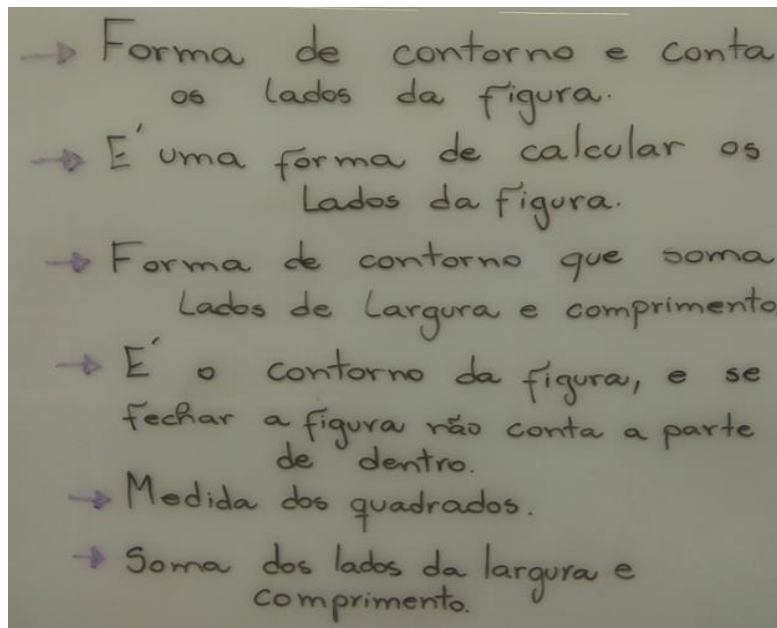 → Forma de contorno e conta
os lados da figura.
→ É uma forma de calcular os
Lados da figura.
→ Forma de contorno que soma
Lados de Largura e comprimento
→ É o contorno da figura, e se
fechar a figura não conta a parte
de dentro.
→ Medida dos quadrados.
→ Soma dos lados da largura e
comprimento.